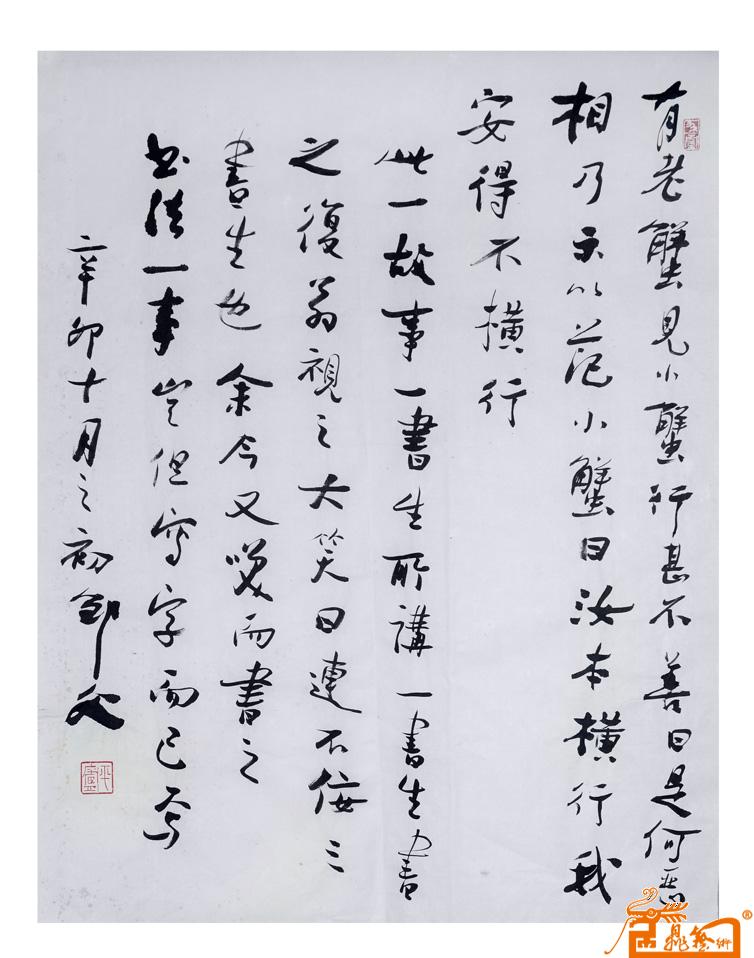 有老蟹見小蟹行甚不善曰是何惡
相乃示以范小蟹曰汝本橫行我
安得不橫行
此一故事一書生所講一書生書
之復翁視之大笑曰連不佞三
書生也余今又嘆而書之
书法一事豈但寫字而已焉
辛卯十月之初鄒
平盧
鼎藝術